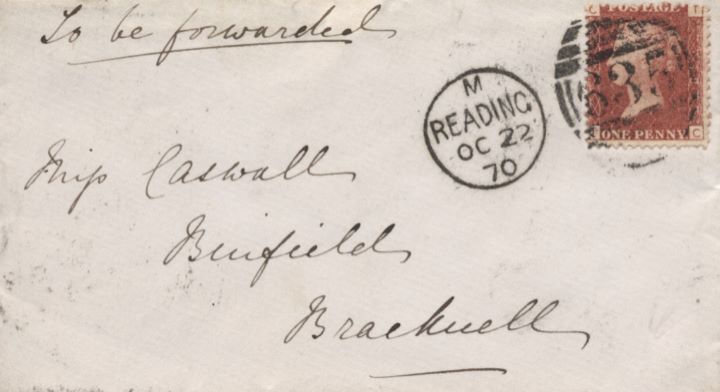 To be forwarded
C POSTAGE T
635
ONE PENNY C
M
READING
OC 22
70
Miss Caswall
Binfield
Bracknell